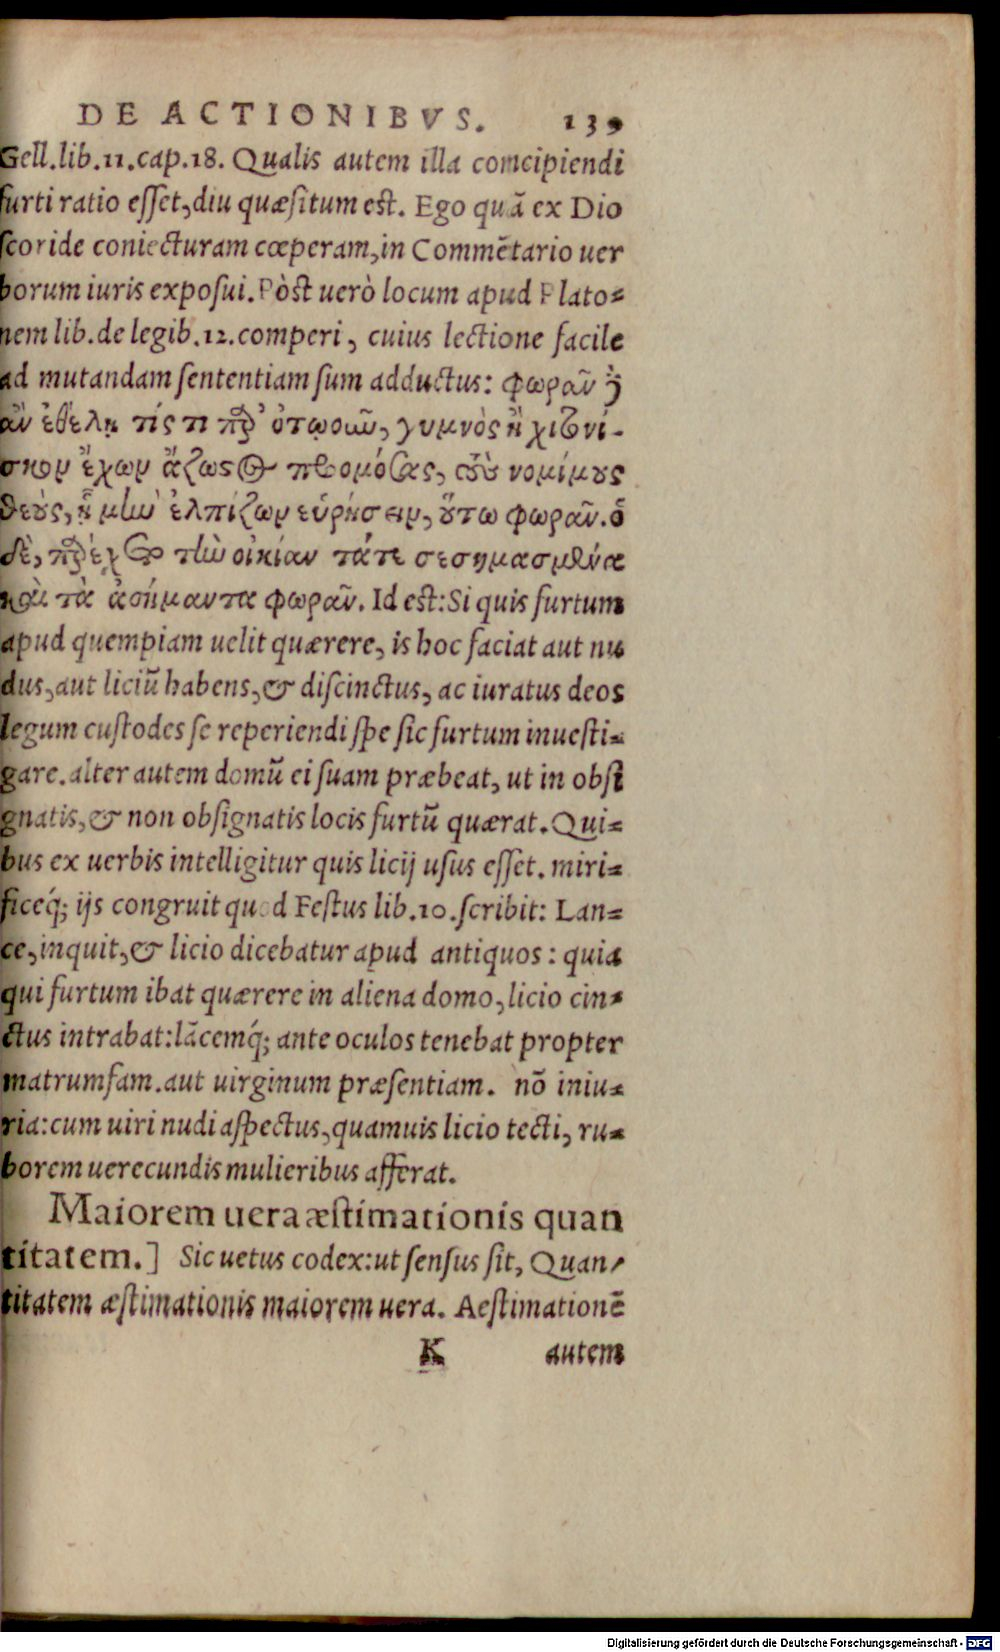 DE ACTIONIBVS. 139
Gell.lib.11.cap.18. Qualis autem illa comcipiendi
furti ratio esset,diu quæsitum est. Ego quā ex Dio
scoride coniecturam cœperam,in Commētario uer
borum iuris exposui. Pòst uerò locum apud Plato-
nem lib. de legib.12.comperi, cuius lectione facile
ad mutandam sententiam sum adductus: φωρᾶν δ'
ἂν ἐθέλῃ τίς τι παρ' ὁτῳοιῦν, γυμνὸς ἢ χιτωνί-
σκον ἔχων ἄζωστος προομόσας, τοὺς νομίμους
θεοὺς, ἦ μὴν ἐλπίζων εὑρήσειν, οὕτω φωρᾶν. ὁ
δὲ, παρεχέτω τὴν οἰκίαν τάτε σεσημασμένα
καὶ τὰ ἀσήμαντα φωρᾶν. Id est: Si quis furtum
apud quempiam uelit quærere, is hoc faciat aut nu
dus,aut liciū habens,& discinctus, ac iuratus deos
legum custodes se reperiendi spe sic furtum inuesti-
gare.alter autem domū ei suam præbeat, ut in obsi
gnatis,& non obsignatis locis furtū quærat. Qui-
bus ex uerbis intelligitur quis licij usus esset. miri-
ficeq́; ijs congruit quod Festus lib.10.scribit: Lan-
ce,inquit,& licio dicebatur apud antiquos: quia
qui furtum ibat quærere in aliena domo,licio cin-
ctus intrabat:lācemq́; ante oculos tenebat propter
matrumfam.aut uirginum præsentiam. nō iniu-
ria:cum uiri nudi aspectus,quamuis licio tecti, ru-
borem uerecundis mulieribus afferat.
Maiorem uera æstimationis quan
titatem.] Sic uetus codex:ut sensus sit, Quan-
titatem æstimationis maiorem uera. Aestimationē
K autem
Digitalisierung gefördert durch die Deutsche Forschungsgemeinschaft - DFG